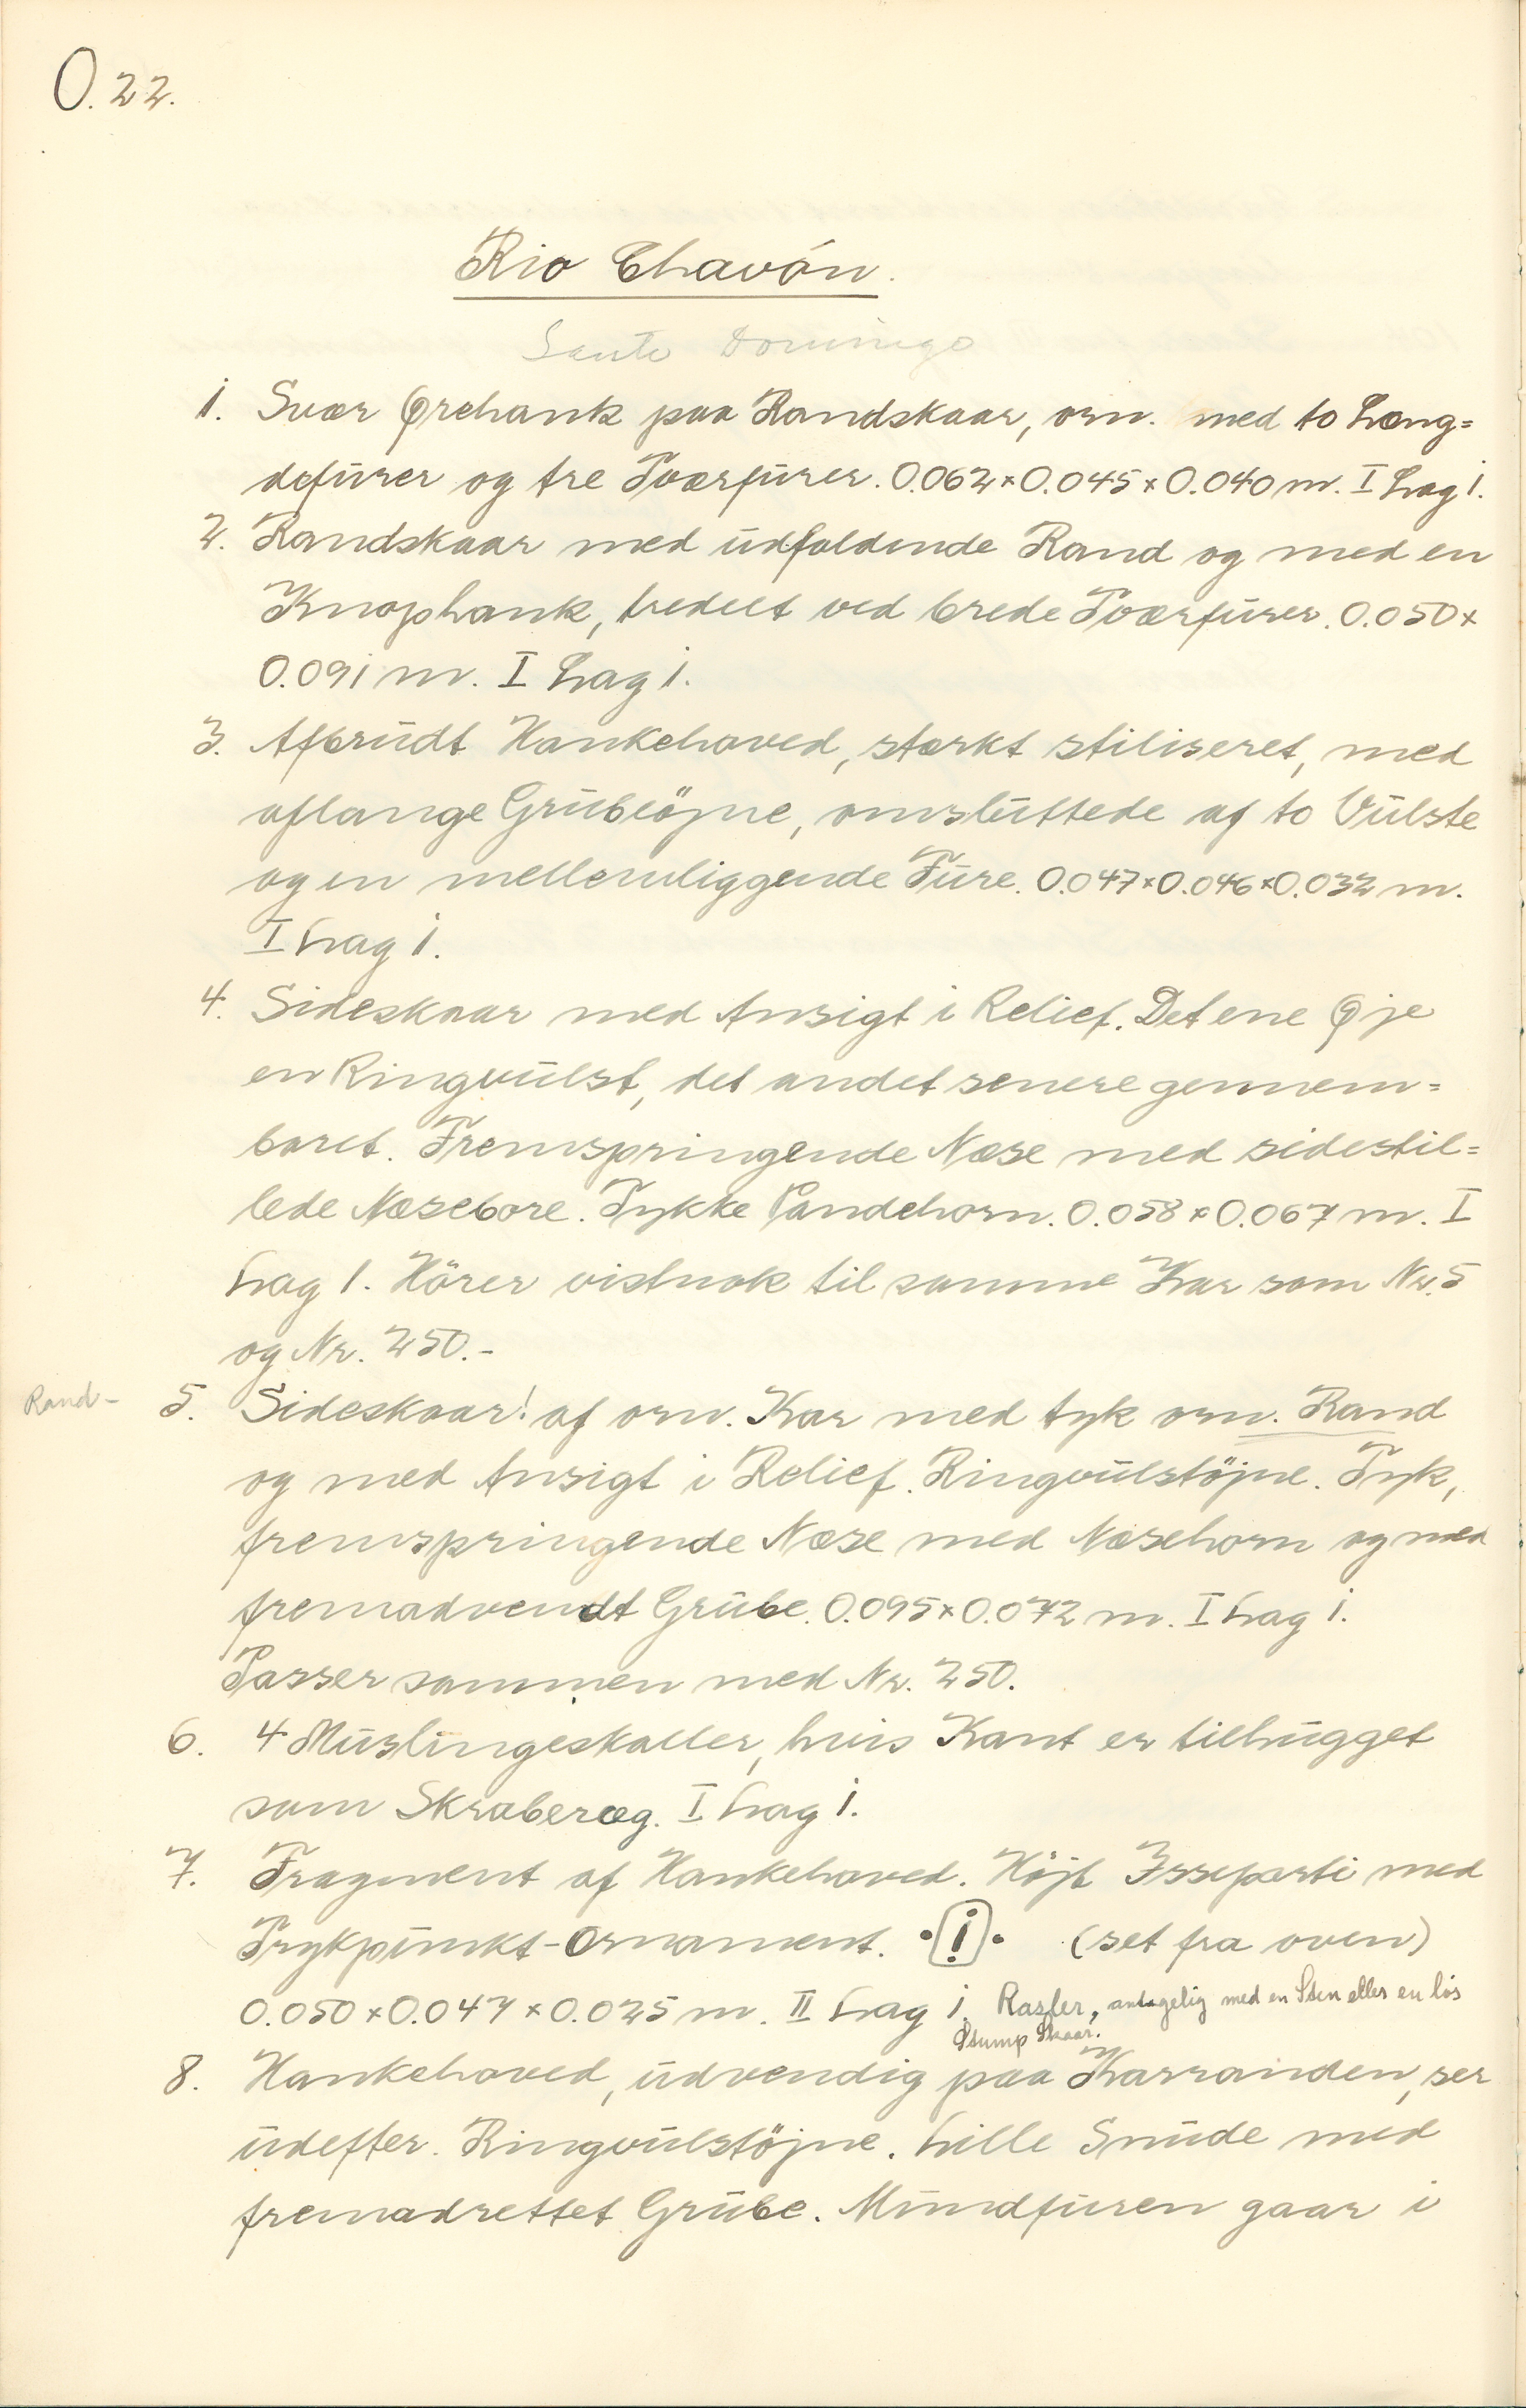 O. 22.
Rio Chavón.
Santo Domingo
1. Svær Ørehank paa Randskaar, orn. med to Læng=
defurer og tre Tværfurer. 0.062×0.045×0.040 m. I Lag 1.
2. Randskaar med udfaldende Rand og med en
Knophank, tredelt ved brede Tværfurer. 0.050×
0.091 m. I Lag 1.
3. Afbrudt Hankehoved, stærkt stiliseret, med
aflange Grubeöjne, omsluttede af to Vulste
og en mellemliggende Fure. 0.047×0.046×0.032 m.
I Lag 1.
4. Sideskaar med Ansigt i Relief. Det ene Øje
en Ringvulst, det andet senere gennem=
boret. Fremspringende Næse med sidestil=
lede Næsebore. Tykke Pandehorn. 0.058×0.067 m. I
Lag 1. Hörer vistnok til samme Kar som Nr. 5
og Nr. 250.-
Rand- 5. Sideskaar! af orn. Kar med tyk orn. Rand
og med Ansigt i Relief. Ringvulstöjne. Tyk,
fremspringende Næse med Næsehorn og med
fremadvendt Grube. 0.095×0.072 m. I Lag 1.
Passer sammen med Nr. 250.
6. 4 Muslingeskaller, hvis Kant er tilhugget
som Skraberæg. I Lag 1.
7. Fragment af Hankehoved. Höjt Isseparti med
Trykpunkt-Ornament. (set fra oven)
0.050×0.047×0.025 m. II Lag 1. Rasler, antagelig med en Sten eller en lös
Stump Skaar.
8. Hankehoved, udvendig paa Karranden, ser
udefter. Ringvulstöjne. Lille Snude med
fremadrettet Grube. Mundfuren gaar i